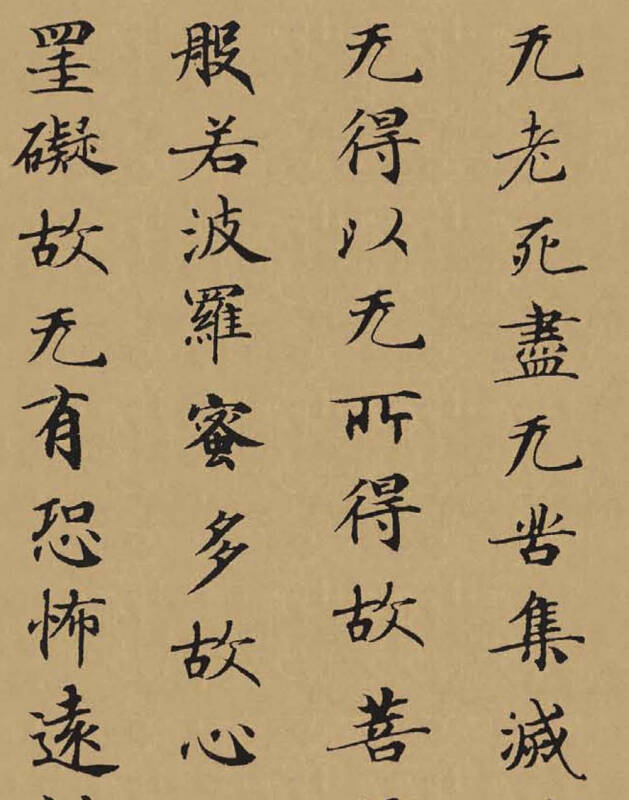 无老死盡无苦集滅
无得以无所得故菩
般若波羅蜜多故心
罣礙故无有恐怖遠